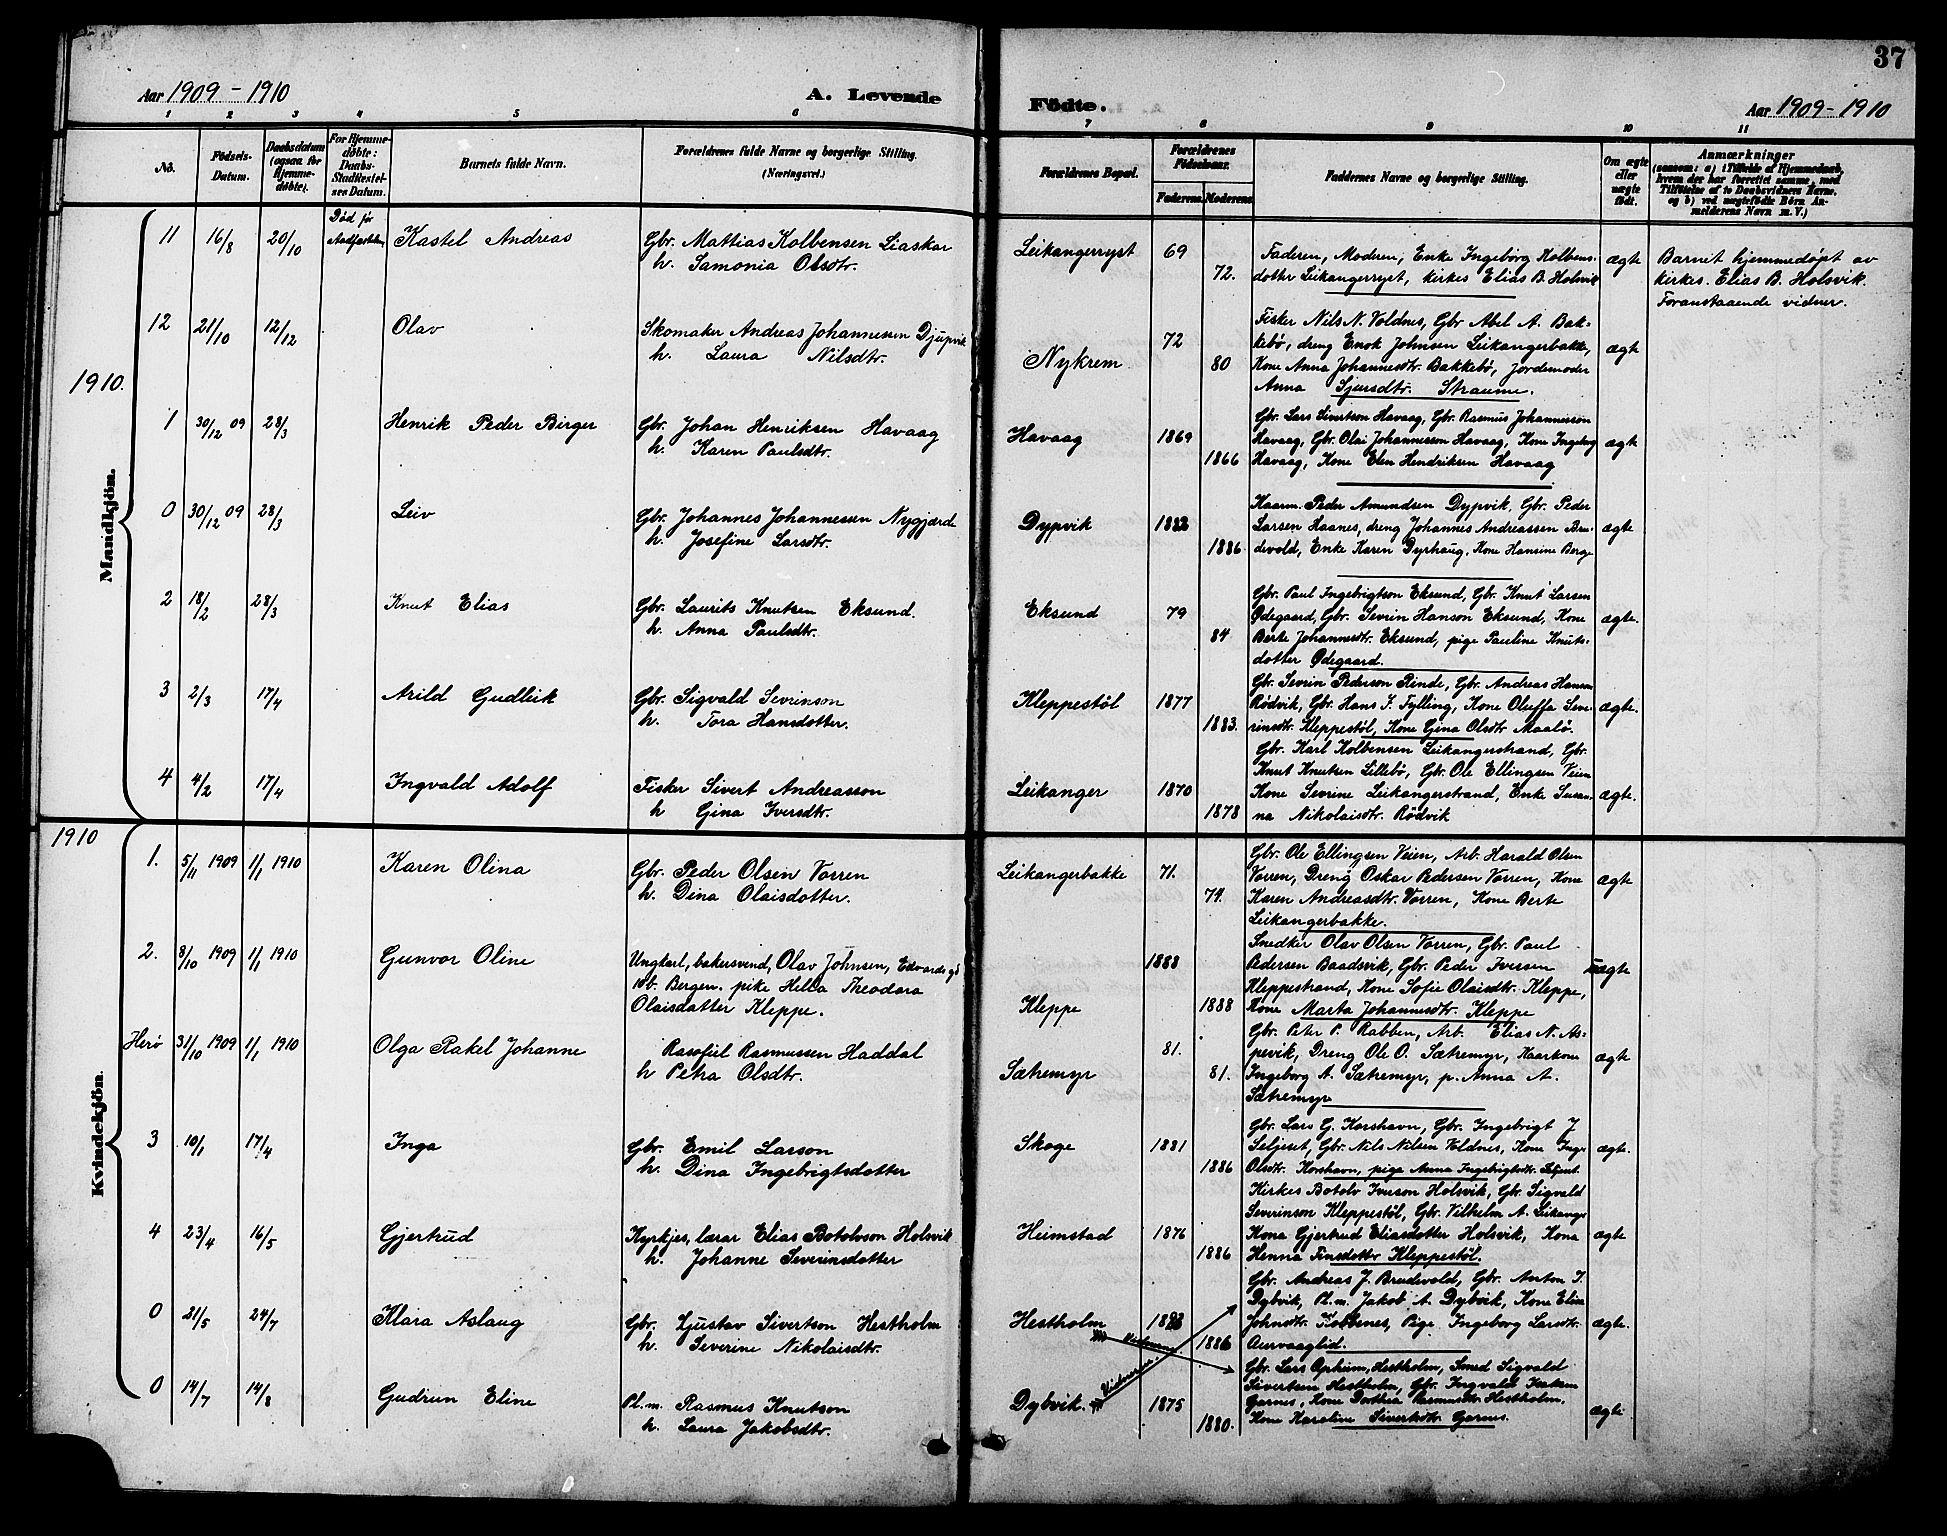 37
Aar 1909 - 1910
A. Levende
Fødte.
Aar 1909 - 1910
1 2 3 4 5 6 7 8 9 10 11
No.
Födsels-Datum.
Daabsdatum (ogsaa for Hjemme-døbte).
For Hjemme-døbte: Daabs-Stadfæstel-ses Datum.
Barnets fulde Navn.
Forældrenes fulde Navne og borgerlige Stilling.
(Næringsvei.)
Forældrenes Bopæl.
Forældrenes Födselsaar.
Faderens. Moderens.
Faddernes Navne og borgerlige Stilling.
Om ægte eller uægte født.
Anmærkninger
(saasom: a) i Tilfælde af Hjemmedaab, hvem der har forrettet samme, med Tilföielse af to Daabsvidners Navne, og b) ved uægtefødte Börn Anmelderens Navn m. V.)
Mandkjön.
11 16/8 20/10 Død før Kastel Andreas
Gbr. Mattias Kolbensen Liaskar
h. Samonia Olsdtr.
Leikangerryst 69 72.
Faderen, Moderen, Enke Ingeborg Kolbens-
dotter Leikangerryst, kirkes Elias B. Holsvik
ægte
Barnit hjemmedøpt av
kirkes. Elias B. Holsvik.
Foranstaaende vidner.
12 21/10 12/12 Olav
Skomaker Andreas Johannessen Djupvik
h. Laura Nilsdtr.
Nykrem 72 80
Fisker Nils N. Voldnes, Gbr Abel A. Bak-
kebø, dreng Enok Johnsen Leikangerbakke,
Kone Anna Johannesdtr. Bakkebø, Jordemoder
Anna Sjursdtr. Straume.
ægte
1910.
1 30/12 09 28/3 Henrik Peder Birger
Gbr. Johan Henriksen Havaag
h. Karen Paulsdtr.
Havaag 1869 1866
Gbr. Lars Sivertson Havaag, Gbr. Rasmus Johannesson
Havaag, Gbr. Olai Johannesson Havaag, Kone Ingeborg
Havaag, Kone Elen Hendriksen Havaag
ægte
0 30/12 09 28/3 Leiv
Gbr. Johannes Johannessen Nygjærde
h. Josefine Larsdtr.
Dypvik 1886.
Kaarm. Peder Amundsen Dypvik, Gbr. Peder
Larsen Haanes, dreng Johannes Andreassen Bru-
devold, Enke Karen Dyrhaug, Kone Hansine Berge
ægte
2 18/2 28/3 Knut Elias
Gbr. Laurits Knutsen Eksund.
h. Anna Paulsdtr.
Eksund 79 84
Gbr. Paul Ingebrigtson Eksund, Gbr. Knut Larsen
Ødegaard, Gbr. Sevrin Hanson Eksund, Kone
Berte Johannesdtr. Eksund, pige Pauline Knuts-
dotter Ødegaard.
ægte.
3 2/3 17/4 Arild Gudleik
Gbr. Sigvald Severinson
h. Tora Hansdotter.
Kleppestøl 1877 1883.
Gbr. Sevrin Pederson Rinde, Gbr. Andreas Hanson
Rødvik, Gbr. Hans J. Fylling, Kone Oluffa Sev-
rinsdtr. Kleppestøl, Kone Gina Olsdtr Maalø.
ægte.
4 4/2 17/4 Ingvald Adolf
Fisker Sivert Andreasson
h Gina Iversdtr.
Leikanger 1870 1878
Gbr. Karl Kolbensen Leikangerstrand, Gbr.
Knut Knutsen Lillebø, Gbr. Ole Ellingsen Veien
Kone Sevrine Leikangerstrand, Enke Susan-
na Nikolaisdtr. Rødvik
ægte.
1910
Kvindekjön.
1. 5/11 1909 1/1 1910 Karen Olina
Gbr. Peder Olsen Vorren
h. Dina Olaisdotter.
Leikangerbakke 71. 74.
Gbr. Ole Ellingsen Veien, Arb. Harald Olsen
Vorren, Dreng Oskar Pedersen Vorren, Kone
Karen Andreasdtr. Vorren, Kone Berte
Leikangerbakke.
ægte
2. 8/10 1909 1/1 1910 Gunvor Oline
Ungkarl, bakersvend, Olav Johnsen, Edvards gd
10b. Bergen. pike Helba Theodora
Olaisdatter Kleppe.
Kleppe 1888 1888
Snedker Olav Olsen Vorren, Gbr. Paul
Pedersen Baadsvik, Gbr. Peder Iversen
Kleppestrand, Kone Sofie Olaisdtr. Kleppe,
Kone Marta Johannesdtr. Kleppe
Uægte
Herø 31/10 1909 1/1 1910 Olga Rakel Johanne
Rasafiel Rasmussen Haddal
h Petra Olsdtr.
Sætremyr 81. 81.
Gbr. Peter P. Rabben, Arb. Elias N. As-
pevik, Dreng Ole O. Sætremyr, Kaarkone
Ingeborg A. Sætremyr, p. Anna A.
Sætremyr
ægte
3 10/1 17/4 Inga
Gbr. Emil Larson
h. Dina Ingebrigtsdotter
Skoge 1881 1886
Gbr. Lars G. Korshavn, Gbr. Ingebrigt J
Seljeset, Gbr. Nils Nilsen Voldnes, Kone Inger
Olsdtr. Korshavn, pige Anna Ingebrigtsdtr. Seljeset.
ægte.
4 23/4 16/5 Gjertrud
Kyrkjes, lærar Elias Botolvson Holsvik
h. Johanne Severinsdotter
Heimstad 1876 1886
Kirkes Botolv Iverson Holsvik, Gbr. Sigvald
Severinson Kleppestøl, Gbr. Vilhelm A. Leikanger
Kona Gjertrud Eliasdotter Holsvik, Kona
Henna Finsdotter Kleppestøl.
ægte
0 21/5 24/7 Klara Aslaug
Gbr. Gustav Sivertson Hestholm
h. Severine Nikolaisdtr.
Hestholm 1886
Gbr. Andreas J. Brudevold, Gbr. Anton I.
Dybvik, Pl.m. Jakob A. Dybvik, Kone Elise
Johnsdtr. Pige Ingeborg Larsdtr.
Aurvaaglid.
ægte.
0 14/7 14/8 Gudrun Eline
Pl.m. Rasmus Knutson
h. Laura Jakobsdtr.
Dybvik. Vidner 1875 1880.
Gbr. Lars Opheim, Hestholm, Smed Sigvald
Sivertsen Hestholm, Gbr. Ingvald
Garnes, Kone Dorthea Rasmusdtr. Hestholm.
Kone Karoline Sivertsdtr. Garnes.
ægte